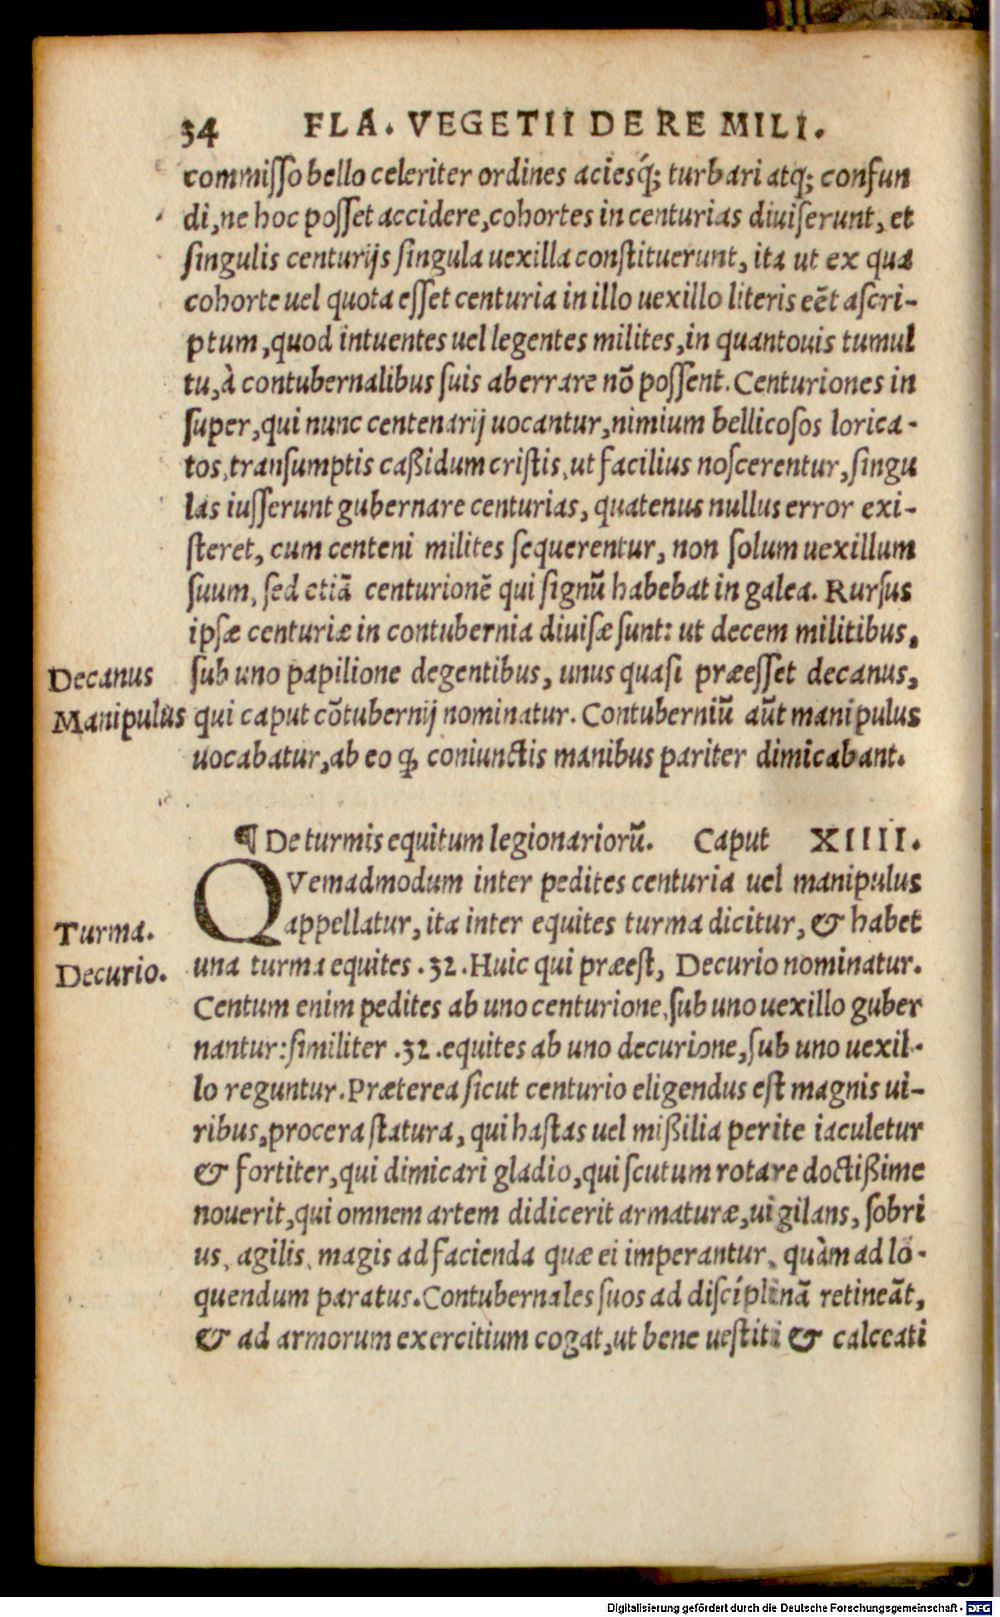 34 FLA. VEGETII DE RE MILI.
commisso bello celeriter ordines aciesq́; turbari atq; confun
di, ne hoc posset accidere, cohortes in centurias diuiserunt, et
singulis centurijs singula uexilla constituerunt, ita ut ex qua
cohorte uel quota esset centuria in illo uexillo literis eēt ascri-
ptum, quod intuentes uel legentes milites, in quantouis tumul
tu, à contubernalibus suis aberrare nō possent. Centuriones in
super, qui nunc centenarij uocantur, nimium bellicosos lorica-
tos, transumptis caßidum cristis, ut facilius noscerentur, singu
las iusserunt gubernare centurias, quatenus nullus error exi-
steret, cum centeni milites sequerentur, non solum uexillum
suum, sed etiā centurionē qui signū habebat in galea. Rursus
ipsæ centuriæ in contubernia diuisæ sunt: ut decem militibus,
Decanus sub uno papilione degentibus, unus quasi præesset decanus,
Manipulus qui caput cōtubernij nominatur. Contuberniū aūt manipulus
uocabatur, ab eo ꝙ coniunctis manibus pariter dimicabant.
¶ De turmis equitum legionariorū. Caput XIIII.
QVemadmodum inter pedites centuria uel manipulus
Turma. appellatur, ita inter equites turma dicitur, & habet
Decurio. una turma equites .32. Huic qui præest, Decurio nominatur.
Centum enim pedites ab uno centurione, sub uno uexillo guber
nantur: similiter .32. equites ab uno decurione, sub uno uexil-
lo reguntur. Præterea sicut centurio eligendus est magnis ui-
ribus, procera statura, qui hastas uel mißilia perite iaculetur
& fortiter, qui dimicari gladio, qui scutum rotare doctißime
nouerit, qui omnem artem didicerit armaturæ, uigilans, sobri
us, agilis, magis ad facienda quæ ei imperantur, quàm ad lo-
quendum paratus. Contubernales suos ad disciplinā retineāt,
& ad armorum exercitium cogat, ut bene uestiti & calceati
Digitalisierung gefördert durch die Deutsche Forschungsgemeinschaft - DFG